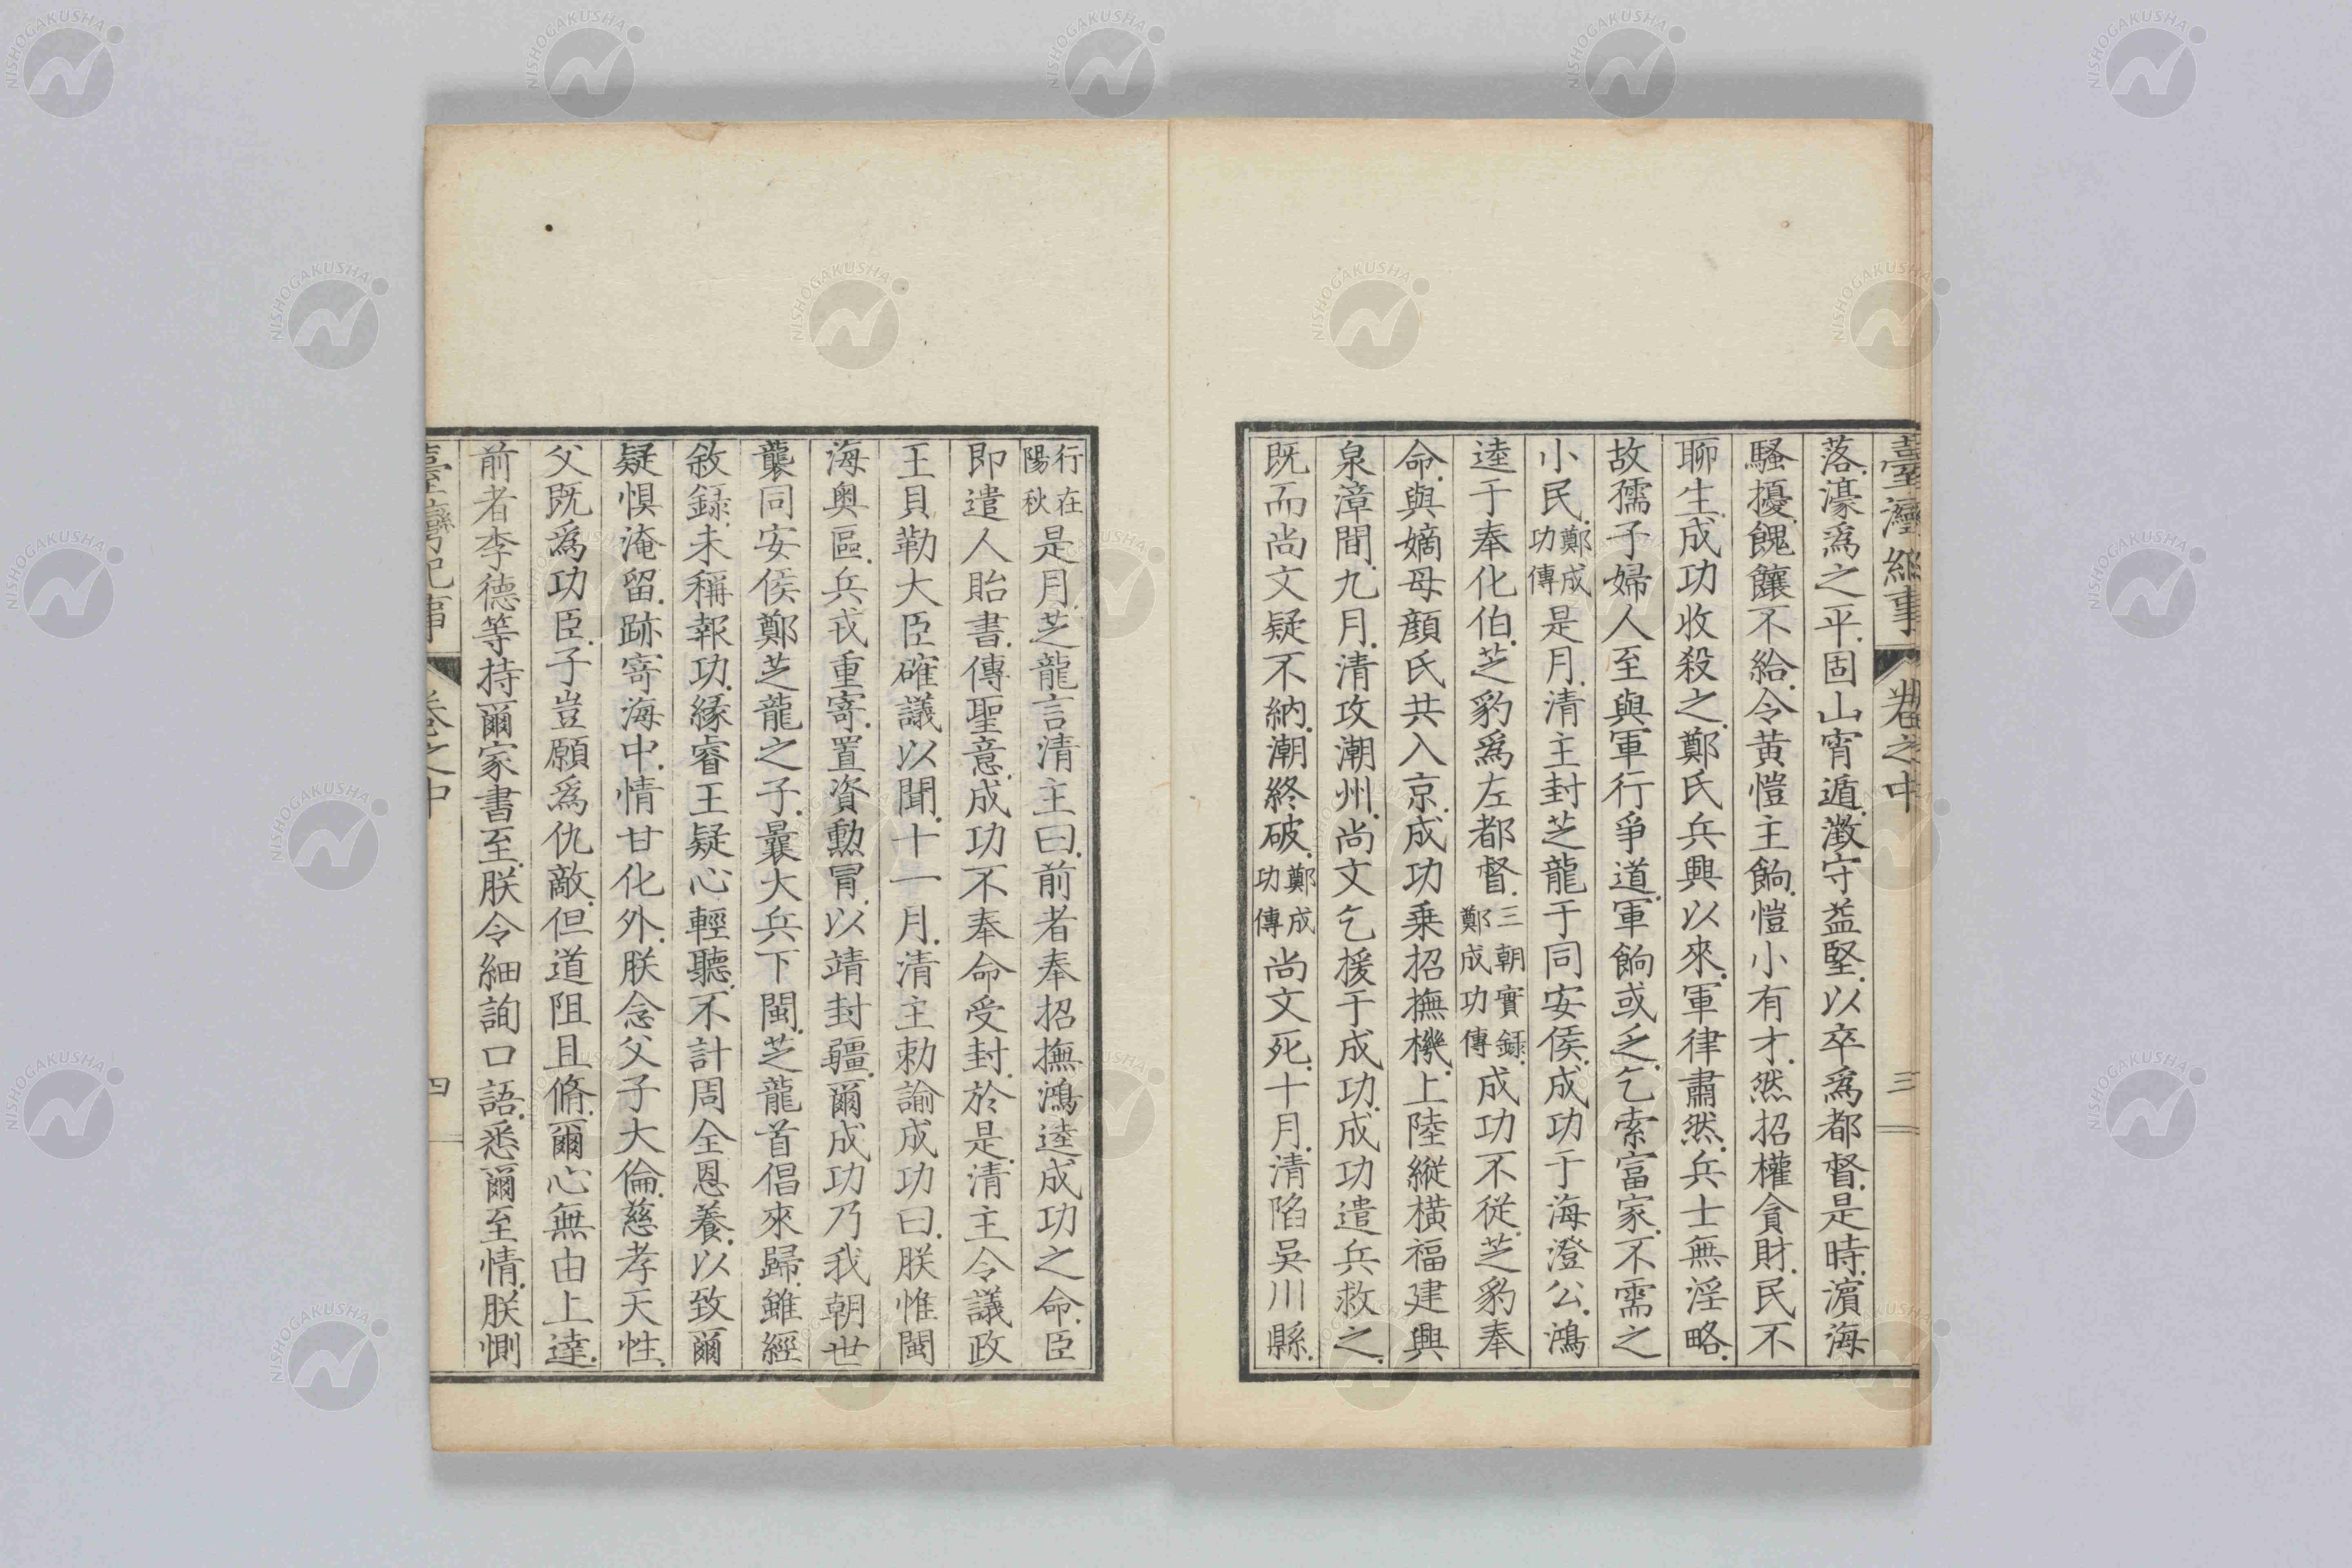 臺灣紀事 卷之中 三
落.濠爲之平.固山宵遁.澂守益堅.以卒爲都督.是時.濵海
騷擾.餽饟不給.令黄愷主餉.愷小有才.然招權貪財.民不
聊生.成功收殺之.鄭氏兵興以來.軍律肅然.兵士無淫略.
故孺子婦人至與軍行爭道.軍餉或乏.乞索富家.不需之
小民.鄭成功傳是月.清主封芝龍于同安侯.成功于海澄公.鴻
逵于奉化伯.芝豹爲左都督.三朝實録.鄭成功傳成功不從.芝豹奉
命.與嫡母顔氏共入京.成功乗招撫機.上陸縱橫福建興
泉漳間.九月.清攻潮州.尚文乞援于成功.成功遣兵救之.
既而尚文疑不納.潮終破.鄭成功傳尚文死.十月.清陷吳川縣.
行在陽秋是月.芝龍言清主曰.前者奉招撫鴻逵成功之命.臣
即遣人貽書.傳聖意.成功不奉命受封.於是.清主令議政
王貝勒大臣確議以聞.十一月.清主勅諭成功曰.朕惟閩
海奥區.兵戎重寄.置資勲冑.以靖封疆.爾成功乃我朝世
襲同安侯鄭芝龍之子.曩大兵下閩.芝龍首倡來歸.雖經
敘録.未稱報功.緣睿王疑心輕聽.不計周全恩養.以致爾
疑惧淹留.跡寄海中.情甘化外.朕念父子大倫.慈孝天性.
父既爲功臣.子豈願爲仇敵.但道阻且脩.爾心無由上達.
前者李德等持爾家書至.朕令細詢口語.悉爾至情.朕惻
臺灣紀事 卷之中 四